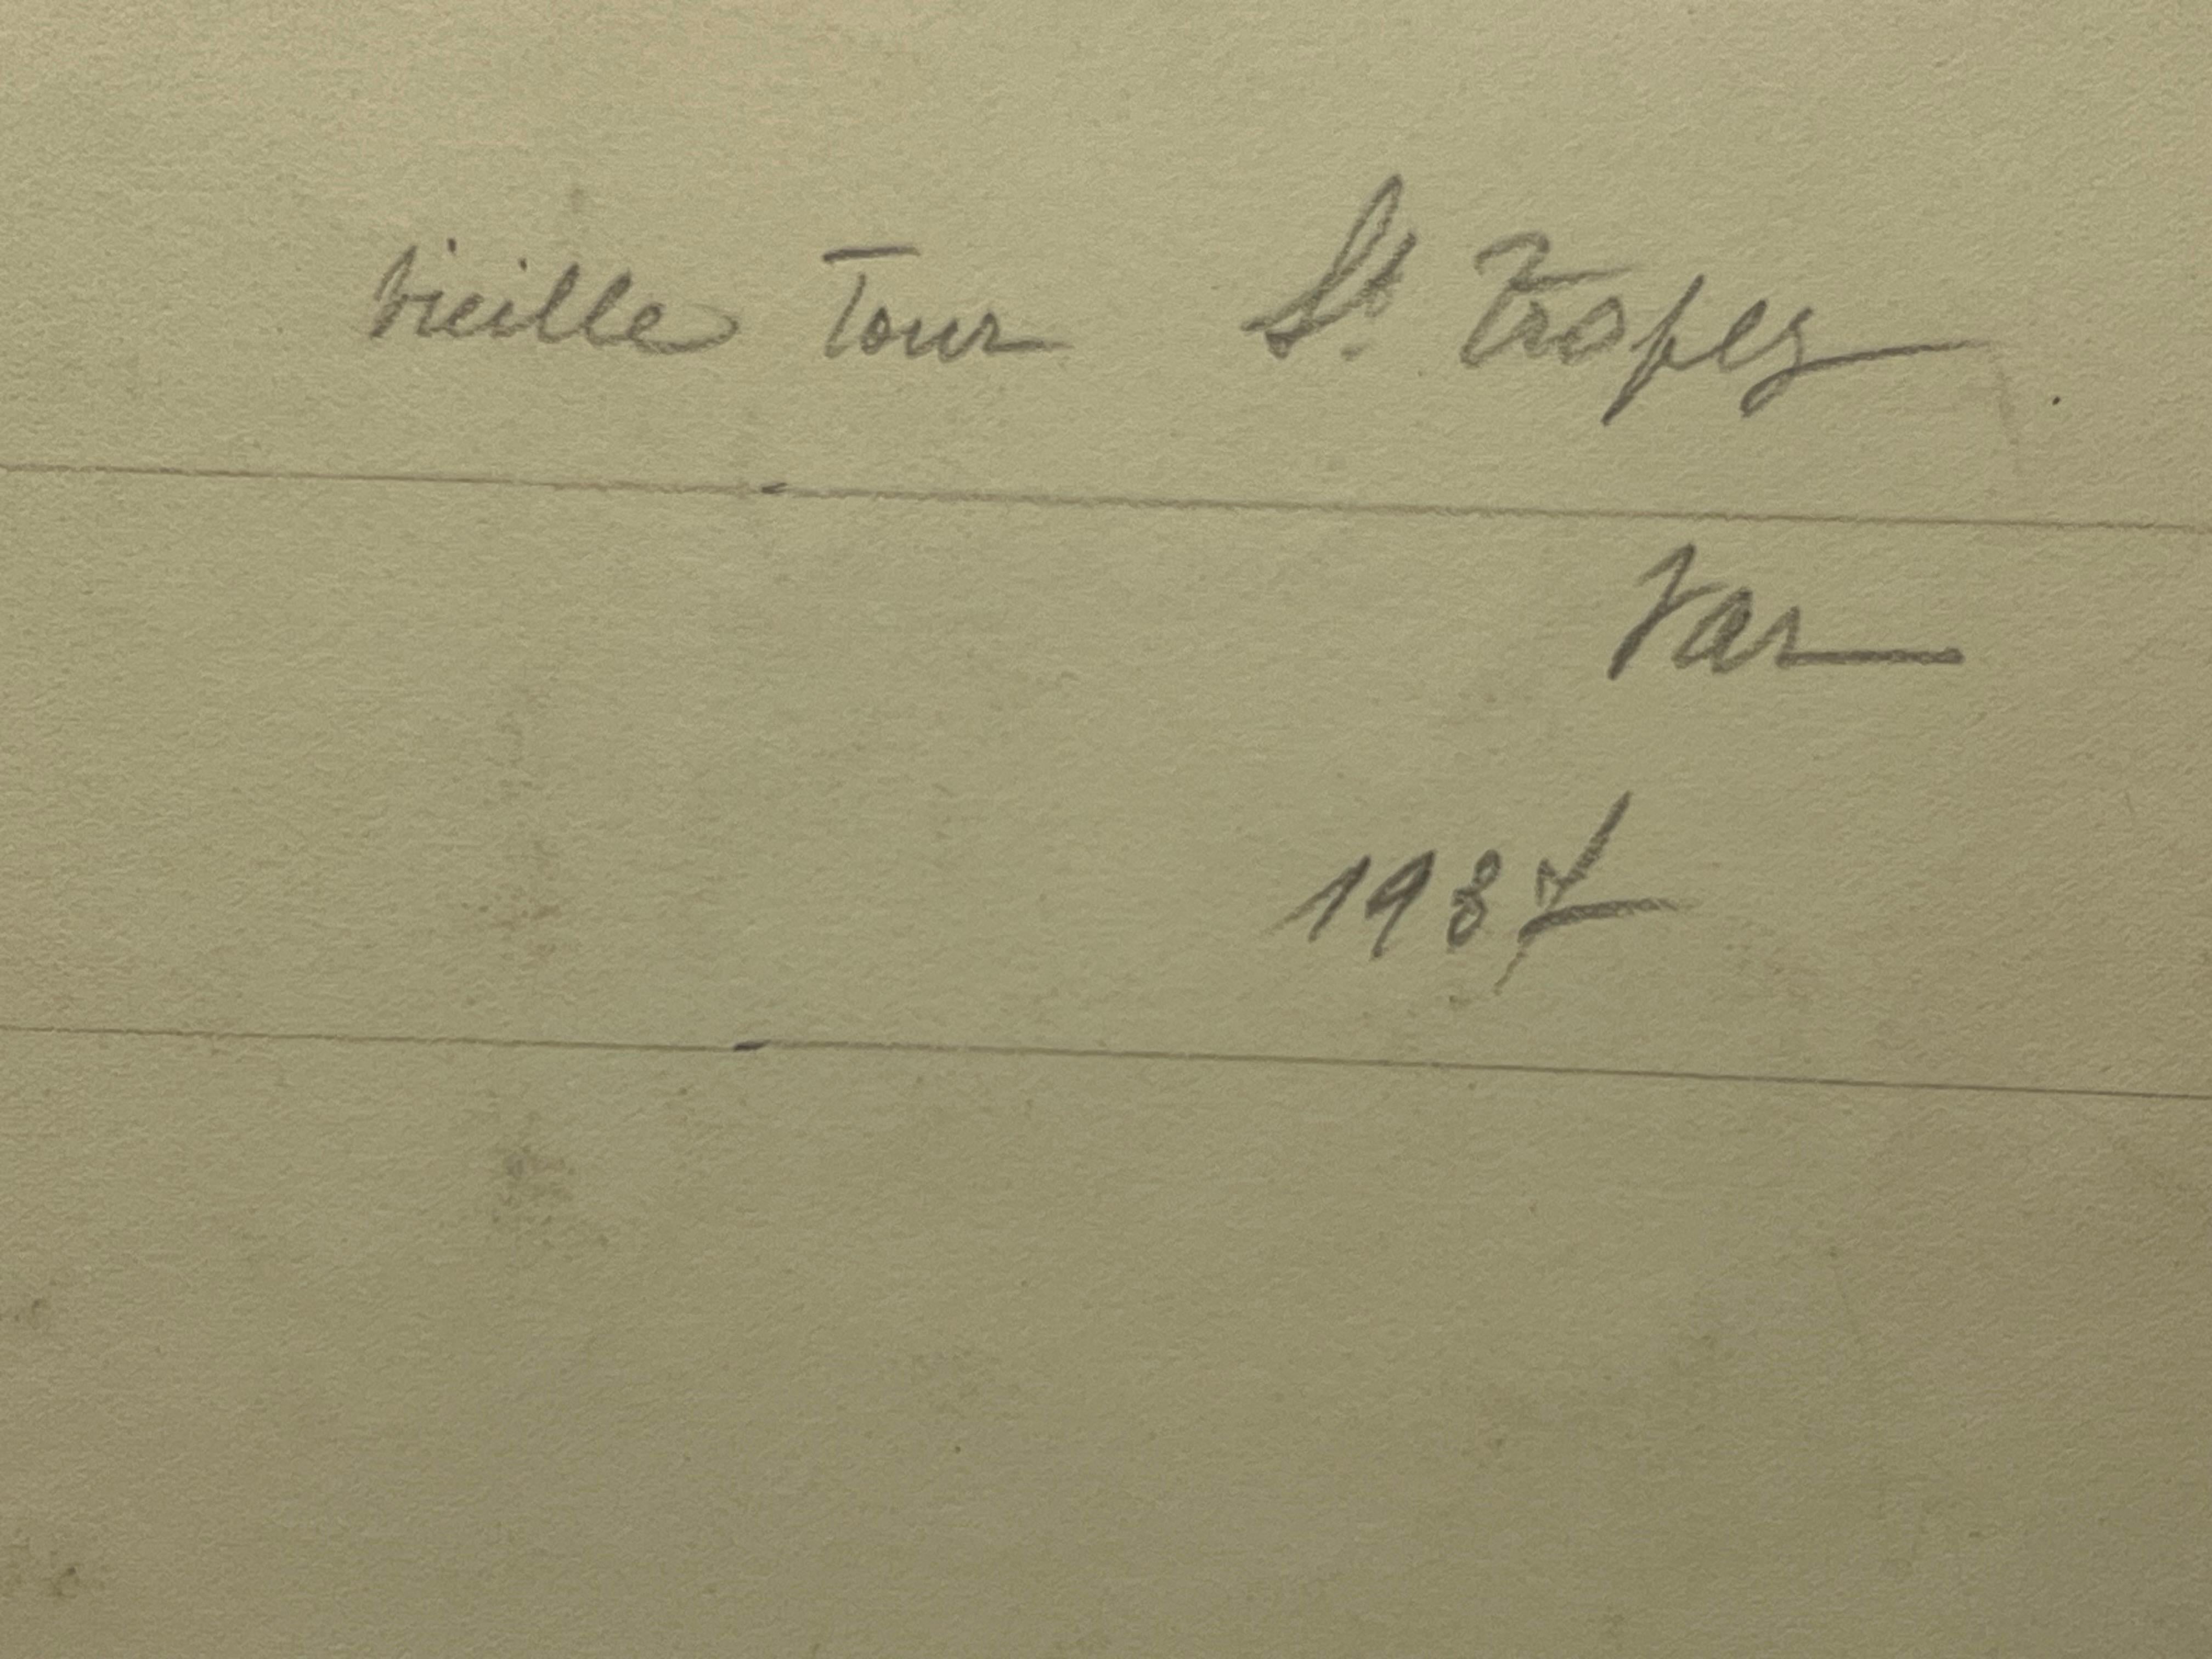 vieille Tour St. Tropez
Var
1987